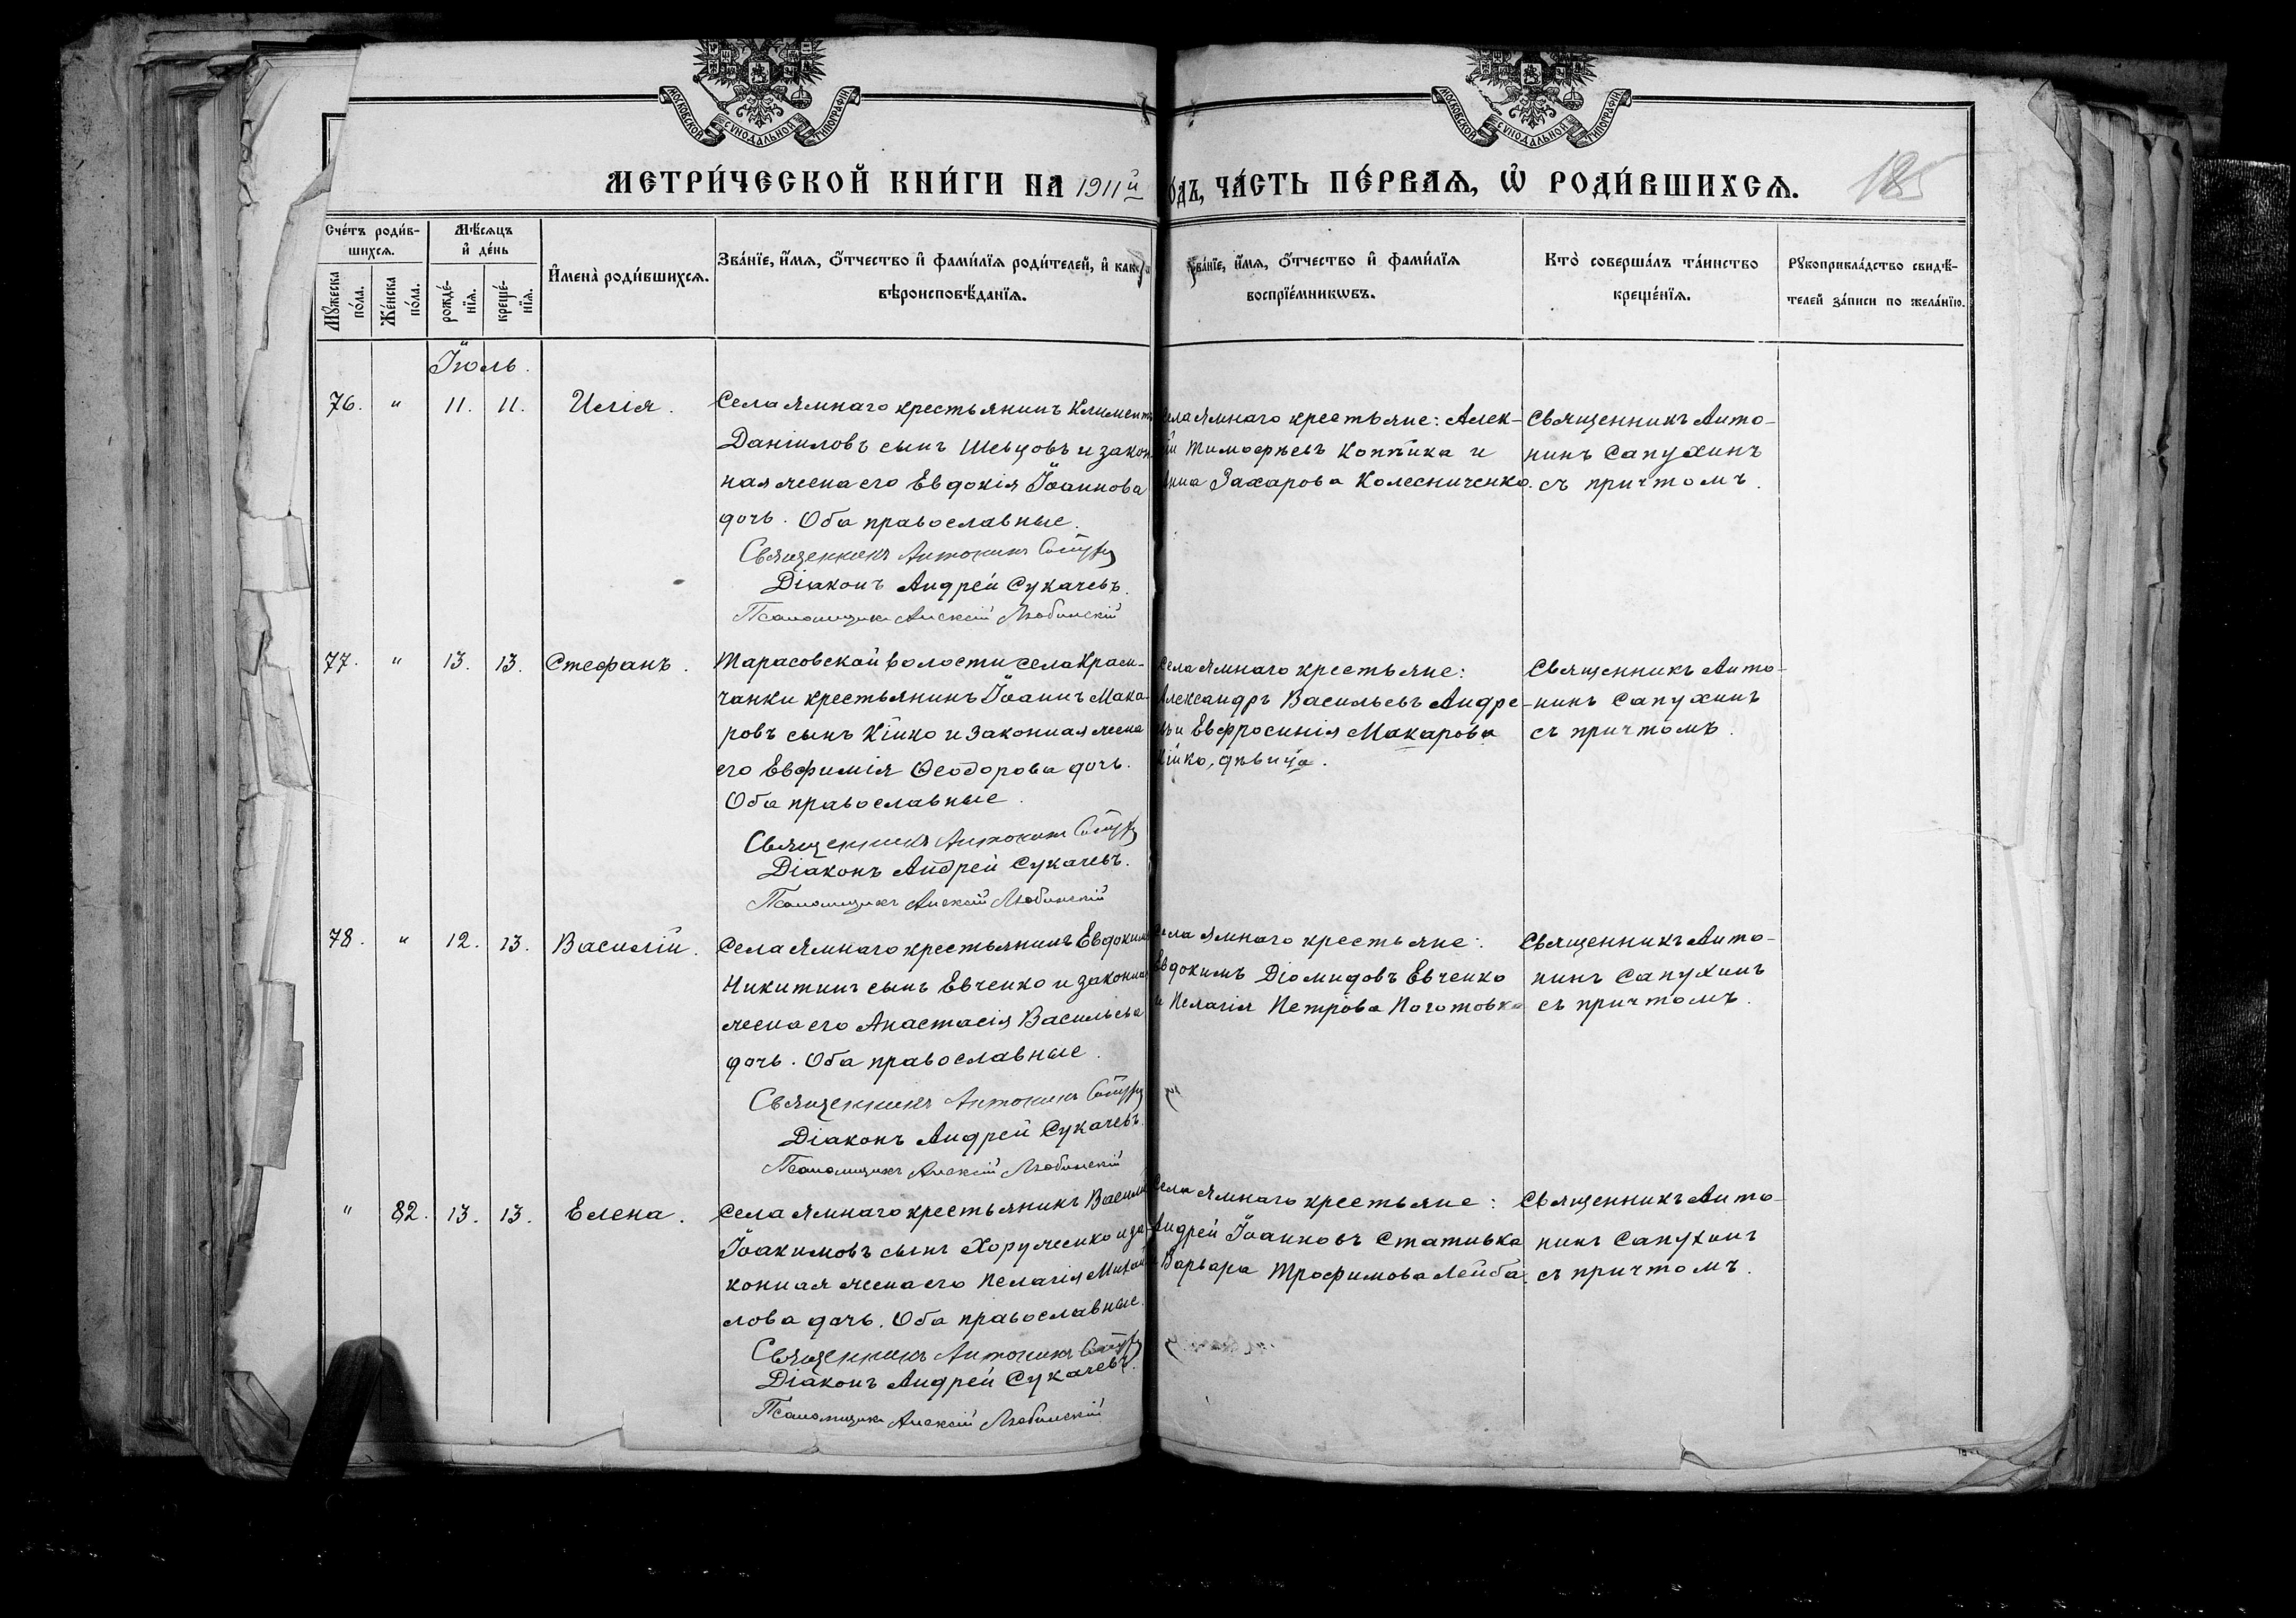 МОСКОВСКОЙ СѴНОДАЛЬНОЙ ТИПОГРАФІИ
МОСКОВСКОЙ СѴНОДАЛЬНОЙ ТИПОГРАФІИ
МЕТРИ́ЧЕСКОЙ КНИ́ГИ НА 1911й
ѻ́дъ, ЧА́СТЬ ПЕ́РВАѦ, Ѡ҆ РОДИ́ВШИХСѦ.
185
Сче́тъ роди́в-
шихсѧ.
Мꙋ́жеска по́ла.
Же́нска по́ла.
Мѣ́сѧцъ
и҆ де́нь
рожде́-
нїѧ.
креще́-
нїѧ.
И҆мена̀ роди́вшихсѧ.
Зва́нїе, и҆́мѧ, ѻ҆́тчество и҆ фами́лїѧ роди́телей, и҆
вѣроисповѣ́данїѧ.
Зва́нїе, и҆́мѧ, ѻ҆́тчество и҆ фами́лїѧ
воспрїе́мникѡвъ.
Кто̀ соверша́лъ та́инство
креще́нїѧ.
Рꙋкоприкла́дство свидѣ́-
телей за́писи по жела́нїю.
Іюль.
76. " 11. 11. Илія.
Села Ямнаго крестьянинъ Климентъ
Даніиловъ сынъ Шевцовъ и закон
ная жена его Евдокія Іоаннова
дочь. Оба православные.
Священникъ Антонинъ
Діаконъ Андрей Сукачевъ.
Псаломщикъ Алексій Любинскій
Села Ямнаго крестьяне: Алек-
сій Тимофеевъ Коптика и
Анна Захарова Колесниченко.
Священникъ Анто-
нинъ Сапухинъ
съ причтомъ.
77. " 13. 13. Стефанъ.
Тарасовской волости села Красн-
чанки крестьянинъ Іоаннъ Мака-
ровъ сынъ Кійко и законная жена
его Евфимія Ѳеодорова дочь.
Оба православные.
Священникъ Антонинъ
Діаконъ Андрей Сукачевъ.
Псаломщикъ Алексій Любинскій
Села Ямнаго крестьяне:
Александръ Васильевъ Андре-
въ и Евфросинія Макарова
Кійко, дѣвица.
Священникъ Анто-
нинъ Сапухинъ
съ причтомъ.
78. " 12. 13. Василій.
Села Ямнаго крестьянинъ Евдокимъ
Никитинъ сынъ Евченко и законная
жена его Анастасія Васильева
дочь. Оба православные.
Священникъ Антонинъ
Діаконъ Андрей Сукачевъ.
Псаломщикъ Алексій Любинскій
Села Ямнаго крестьяне:
Евдокимъ Діомидовъ Евченко
и Пелагія Петрова Поготовка
Священникъ Анто-
нинъ Сапухинъ
съ причтомъ.
" 82. 13. 13. Елена.
Села Ямнаго крестьянинъ Василій
Іоакимовъ сынъ Хоруженко и за-
конная жена его Пелагія Михаи
лова дочь. Оба православные.
Священникъ Антонинъ
Діаконъ Андрей Сукачевъ.
Псаломщикъ Алексій Любинскій
Села Ямнаго крестьяне:
Андрей Іоанновъ Стативка
и Варвара Трофимова Лейба.
Священникъ Анто-
нинъ Сапухинъ
съ причтомъ.